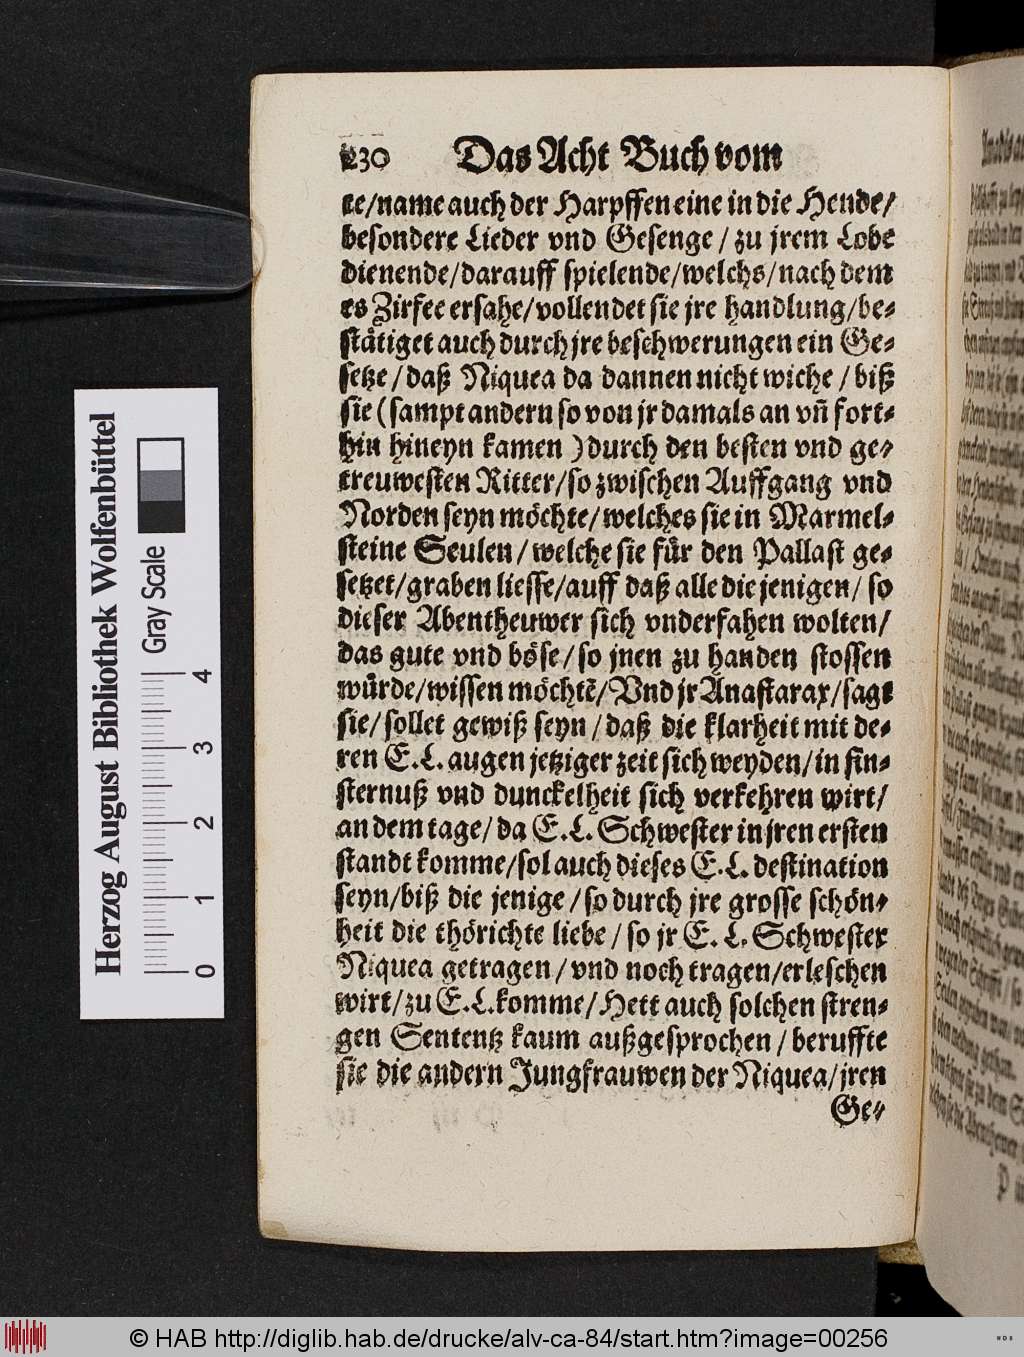 230 Das Acht Buch vom
te/name auch der Harpffen eine in die Hende/
besondere Lieder vnd Gesenge / zu jrem Lobe
dienende/darauff spielende/welchs/nach dem
es Zirfee ersahe/vollendet sie jre handlung/be-
stätiget auch durch jre beschwerungen ein Ge-
setze / daß Niquea da dannen nicht wiche / biß
sie (sampt andern so von jr damals an vñ fort-
hin hineyn kamen ) durch den besten vnd ge-
treuwesten Ritter/so zwischen Auffgang vnd
Norden seyn möchte/welches sie in Marmel-
steine Seulen / welche sie für den Pallast ge-
setzet/graben liesse/auff daß alle die jenigen/ so
dieser Abentheuwer sich vnderfahen wolten/
das gute vnd böse/so jnen zu handen stossen
würde/wissen möchtē/Vnd jr Anastarax/sagt
sie/sollet gewiß seyn / daß die klarheit mit de-
ren E.L. augen jetziger zeit sich weyden/in fin-
sternuß vnd dunckelheit sich verkehren wirt/
an dem tage/ da E.L. Schwester in jren ersten
standt komme/sol auch dieses E.L. destination
seyn/biß die jenige / so durch jre grosse schön-
heit die thörichte liebe / so jr E. L. Schwester
Niquea getragen / vnd noch tragen/erleschen
wirt/zu E.L. komme/Hett auch solchen stren-
gen Sententz kaum außgesprochen / beruffte
sie die andern Jungfrauwen der Niquea/jren
Ge-
Herzog August Bibliothek Wolfenbüttel
Gray Scale
0 1 2 3 4
© HAB http://diglib.hab.de/drucke/alv-ca-84/start.htm?image=00256